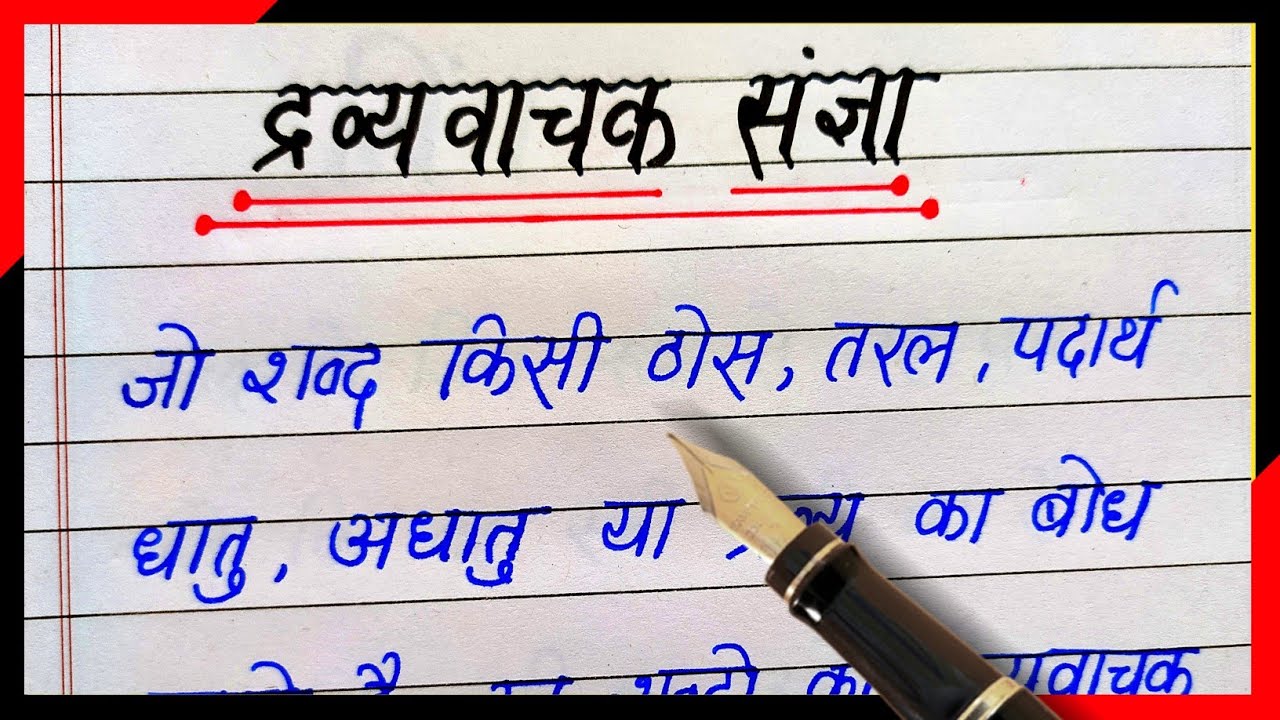 द्रव्यवाचक संज्ञा
जो शब्द किसी ठोस, तरल, पदार्थ
धातु, अधातु या का बोध